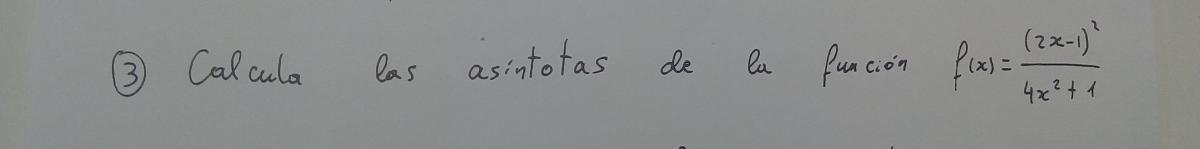 ③ Calcula las asíntotas de la función f(x) = (2x-1)² / 4x² + 1